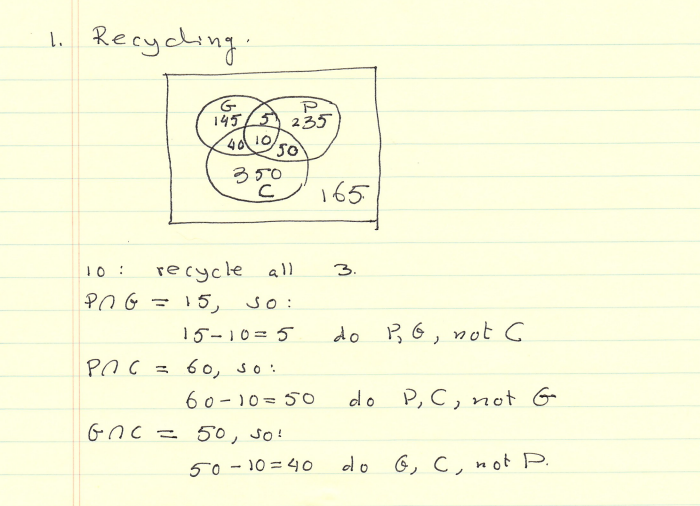 1. Recycling.
G P
145 5 235
40 10 50
350
C 165
10: recycle all 3.
P∩G = 15, so:
15-10=5 do P, G, not C
P∩C = 60, so:
60-10=50 do P, C, not G
G∩C = 50, so:
50-10=40 do G, C, not P.